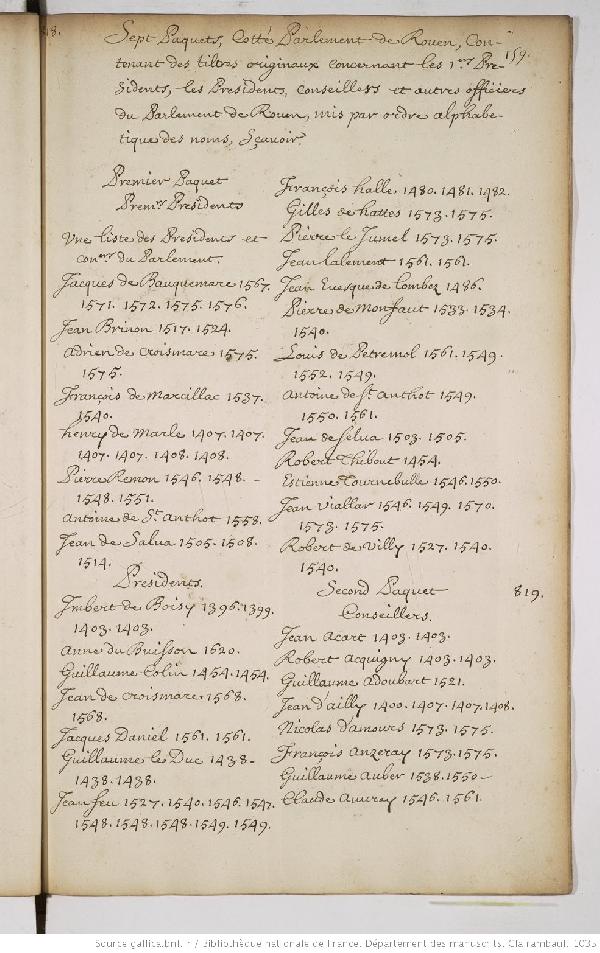 818.
159.
Sept Paquets, Cotté Parlement de Rouen, Con-
tenant des tiltres originaux concernant les 1ers Pre-
sidents, les Presidents, conseillers et autres officiers
du Parlement de Rouen, mis par ordre alphabe-
tique des noms, Sçauoir.
Premier Paquet
Premrs Presidents
Vne liste des Presidents et
coners du Parlement.
Jacques de Bauquemare 1567.
1571. 1572. 1575. 1576.
Jean Brinon 1517. 1524.
Adrien de Croismare 1575.
1575.
François de Marcillac 1537.
1540.
henry de Marle 1407. 1407.
1407. 1407. 1408. 1408.
Pierre Remon 1546. 1548. -
1548. 1551.
Antoine de St. Anthot 1558.
Jean de Salua 1505. 1508.
1514.
Presidents.
Imbert de Boisy 1396. 1399.
1403. 1403.
Anne du Buisson 1620.
Guillaume Colin 1454. 1454.
Jean de Croismare 1568.
1568.
Jacques Daniel 1561. 1561.
Guillaume le Duc 1438-
1438. 1438.
Jean feu 1527. 1540. 1546. 1547.
1548. 1548. 1548. 1549. 1549.
François halle 1480. 1481. 1482.
Gilles de hattes 1573. 1575.
Pierre le Jumel 1573. 1575.
Jean Lalement 1561. 1561.
Jean Euesque de Lombez 1486.
Pierre de Monfaut 1533. 1534.
1540.
Louis de Petremol 1561. 1549.
1552. 1549.
Antoine de St. Anthot 1549.
1550. 1561.
Jean de Selua 1503. 1505.
Robert Thibout 1454.
Estienne Tournebulle 1546. 1550.
Jean Viallar 1546. 1549. 1570.
1573. 1575.
Robert de Villy 1527. 1540.
1540.
Second Paquet 819.
Conseillers.
Jean Acart 1403. 1403.
Robert Acquigny 1403. 1403.
Guillaume Adoubart 1521.
Jean d'ailly 1400. 1407. 1407. 1408.
Nicolas d'amours 1573. 1575.
François Anzeray 1573. 1575.
Guillaume Auber 1538. 1550 -
Claude Auuray 1546. 1561.
Source gallica.bnf.fr / Bibliothèque nationale de France. Département des manuscrits. Clairambault 1035